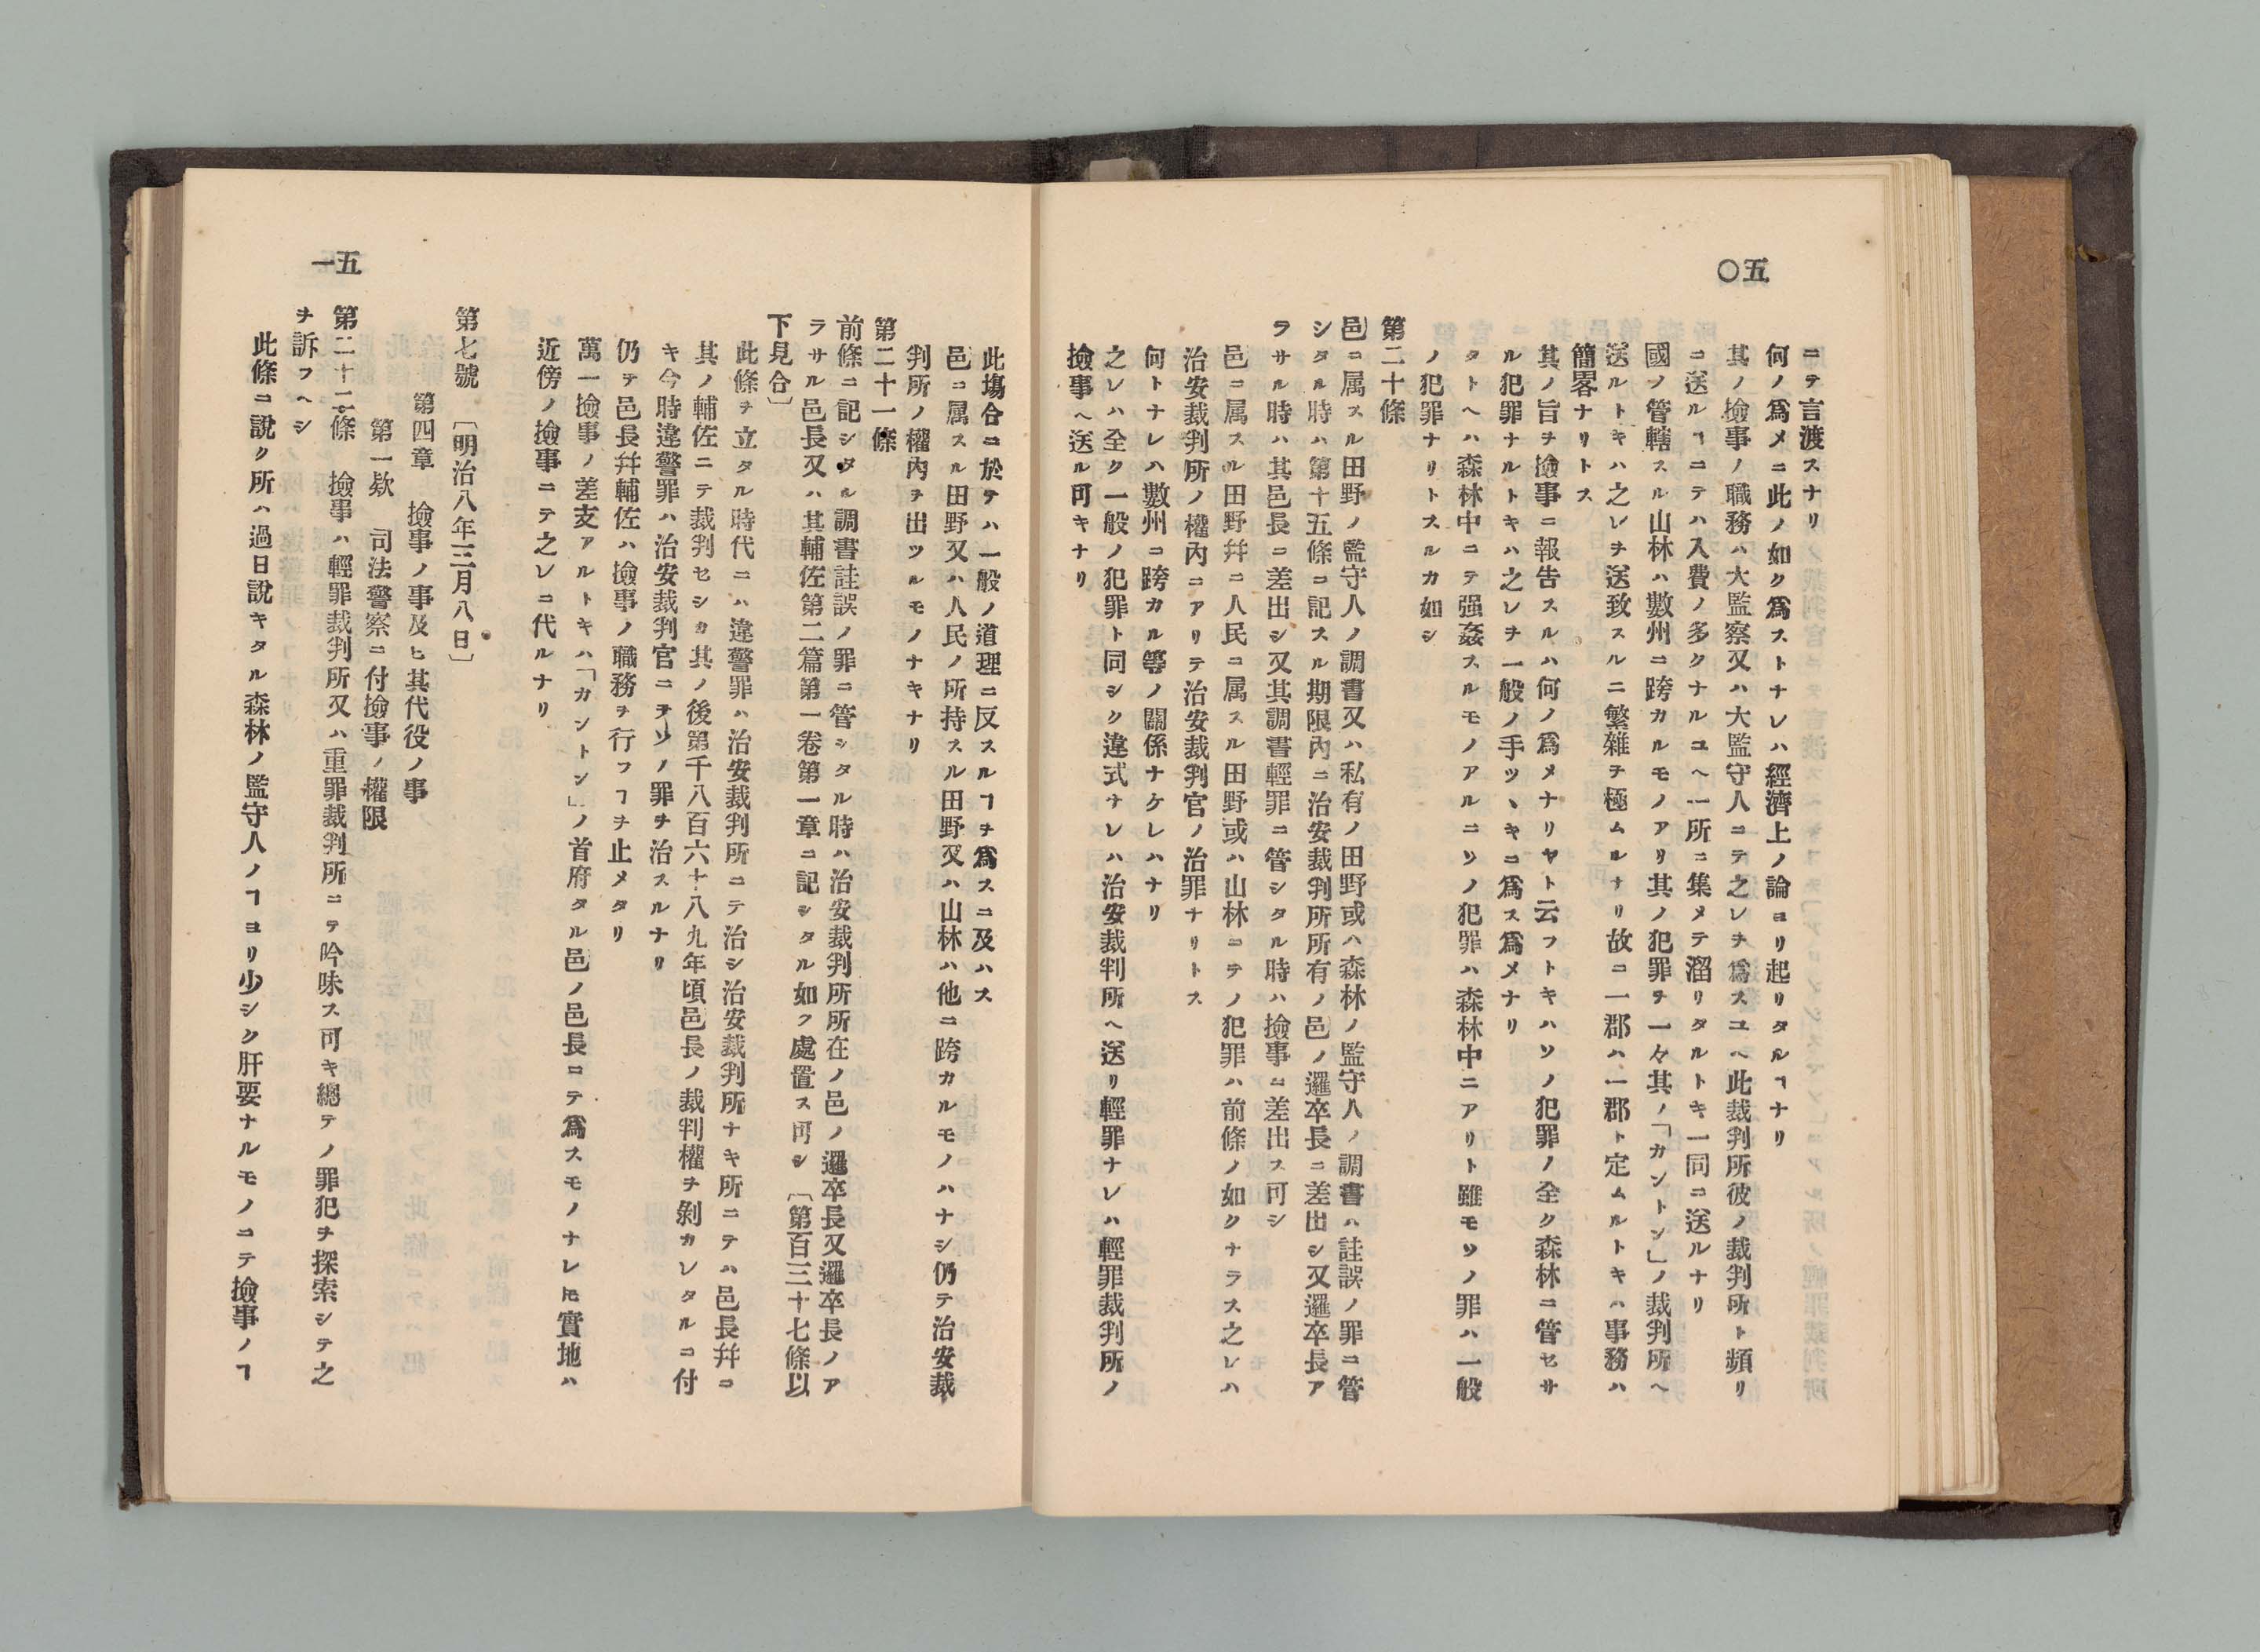 五〇
ニテ言渡スナリ
何ノ爲メニ此ノ如ク爲ストナレハ經濟上ノ論ヨリ起リタルヿナリ
其ノ撿事ノ職務ハ大監察又ハ大監守人ニテ之レヲ爲スユヘ此裁判所彼ノ裁判所ト頻リ
ニ送ルヿニテハ入費ノ多クナルユヘ一所ニ集メテ溜リタルトキ一同ニ送ルナリ
國ノ管轄スル山林ハ數州ニ跨カルモノアリ其ノ犯罪ヲ一々其ノ「カントン」ノ裁判所ヘ
送ルトキハ之レヲ送致スルニ繁雜ヲ極ムルナリ故ニ一郡ハ一郡ト定ムルトキハ事務ハ
簡畧ナリトス
其ノ旨ヲ撿事ニ報告スルハ何ノ爲メナリヤト云フトキハソノ犯罪ノ全ク森林ニ管セサ
ル犯罪ナルトキハ之レヲ一般ノ手ツヽキニ爲ス爲メナリ
タトヘハ森林中ニテ强姦スルモノアルニソノ犯罪ハ森林中ニアリト雖モソノ罪ハ一般
ノ犯罪ナリトスルカ如シ
第二十條
邑ニ属スル田野ノ監守人ノ調書又ハ私有ノ田野或ハ森林ノ監守人ノ調書ハ註誤ノ罪ニ管
シタル時ハ第十五條ニ記スル期限內ニ治安裁判所所有ノ邑ノ邏卒長ニ差出シ又邏卒長ア
ラサル時ハ其邑長ニ差出シ又其調書輕罪ニ管シタル時ハ撿事ニ差出ス可シ
邑ニ属スル田野幷ニ人民ニ属スル田野或ハ山林ニテノ犯罪ハ前條ノ如クナラス之レハ
治安裁判所ノ權內ニアリテ治安裁判官ノ治罪ナリトス
何トナレハ數州ニ跨カル等ノ關係ナケレハナリ
之レハ全ク一般ノ犯罪ト同シク違式ナレハ治安裁判所ヘ送リ輕罪ナレハ輕罪裁判所ノ
撿事ヘ送ル可キナリ
五一
此塲合ニ於テハ一般ノ道理ニ反スルヿヲ爲スニ及ハス
邑ニ属スル田野又ハ人民ノ所持スル田野又ハ山林ハ他ニ跨カルモノハナシ仍テ治安裁
判所ノ權內ヲ出ツルモノナキナリ
第二十一條
前條ニ記シタル調書註誤ノ罪ニ管シタル時ハ治安裁判所所在ノ邑ノ邏卒長又邏卒長ノア
ラサル邑長又ハ其輔佐第二篇第一卷第一章ニ記シタル如ク處置ス可シ〔第百三十七條以
下見合〕
此條ヲ立タル時代ニハ違警罪ハ治安裁判所ニテ治シ治安裁判所ナキ所ニテハ邑長幷ニ
其ノ輔佐ニテ裁判セシカ其ノ後第千八百六十八九年頃邑長ノ裁判權ヲ剝カレタルニ付
キ今時違警罪ハ治安裁判官ニテソノ罪ヲ治スルナリ
仍テ邑長幷輔佐ハ撿事ノ職務ヲ行フヿヲ止メタリ
萬一撿事ノ差支アルトキハ「カントン」ノ首府タル邑ノ邑長ニテ爲スモノナレ𪜈實地ハ
近傍ノ撿事ニテ之レニ代ルナリ
第七號　〔明治八年三月八日〕
第四章　撿事ノ事及ヒ其代役ノ事
第一欵　司法警察ニ付撿事ノ權限
第二十二條　撿事ハ輕罪裁判所又ハ重罪裁判所ニテ吟味ス可キ總テノ罪犯ヲ探索シテ之
ヲ訴フヘシ
此條ニ說ク所ハ過日說キタル森林ノ監守人ノヿヨリ少シク肝要ナルモノニテ撿事ノヿ